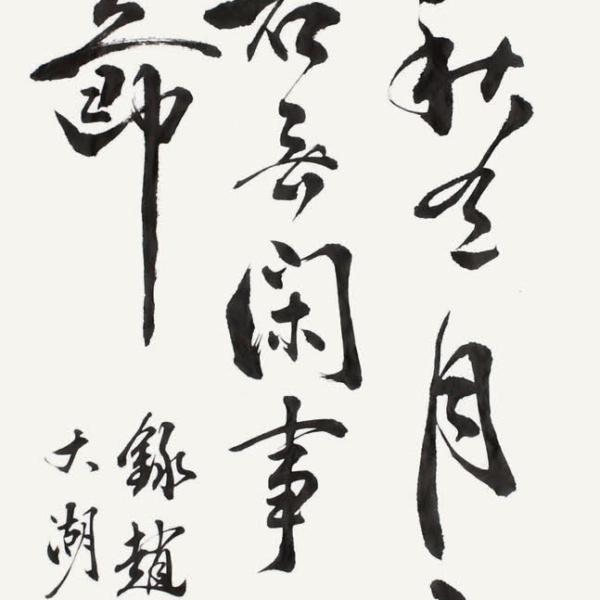 秋有月
若無閑事
節
錄趙
大湖